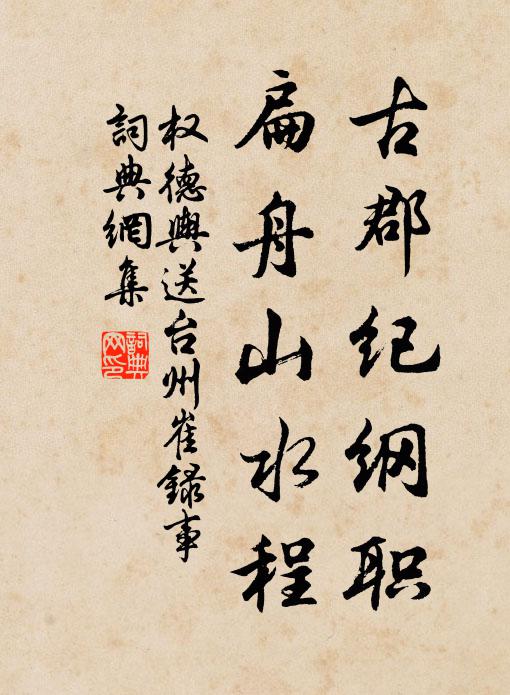 古郡纪纲职
扁舟山水程
权德舆送台州崔録事
詞典網集
詞典网印